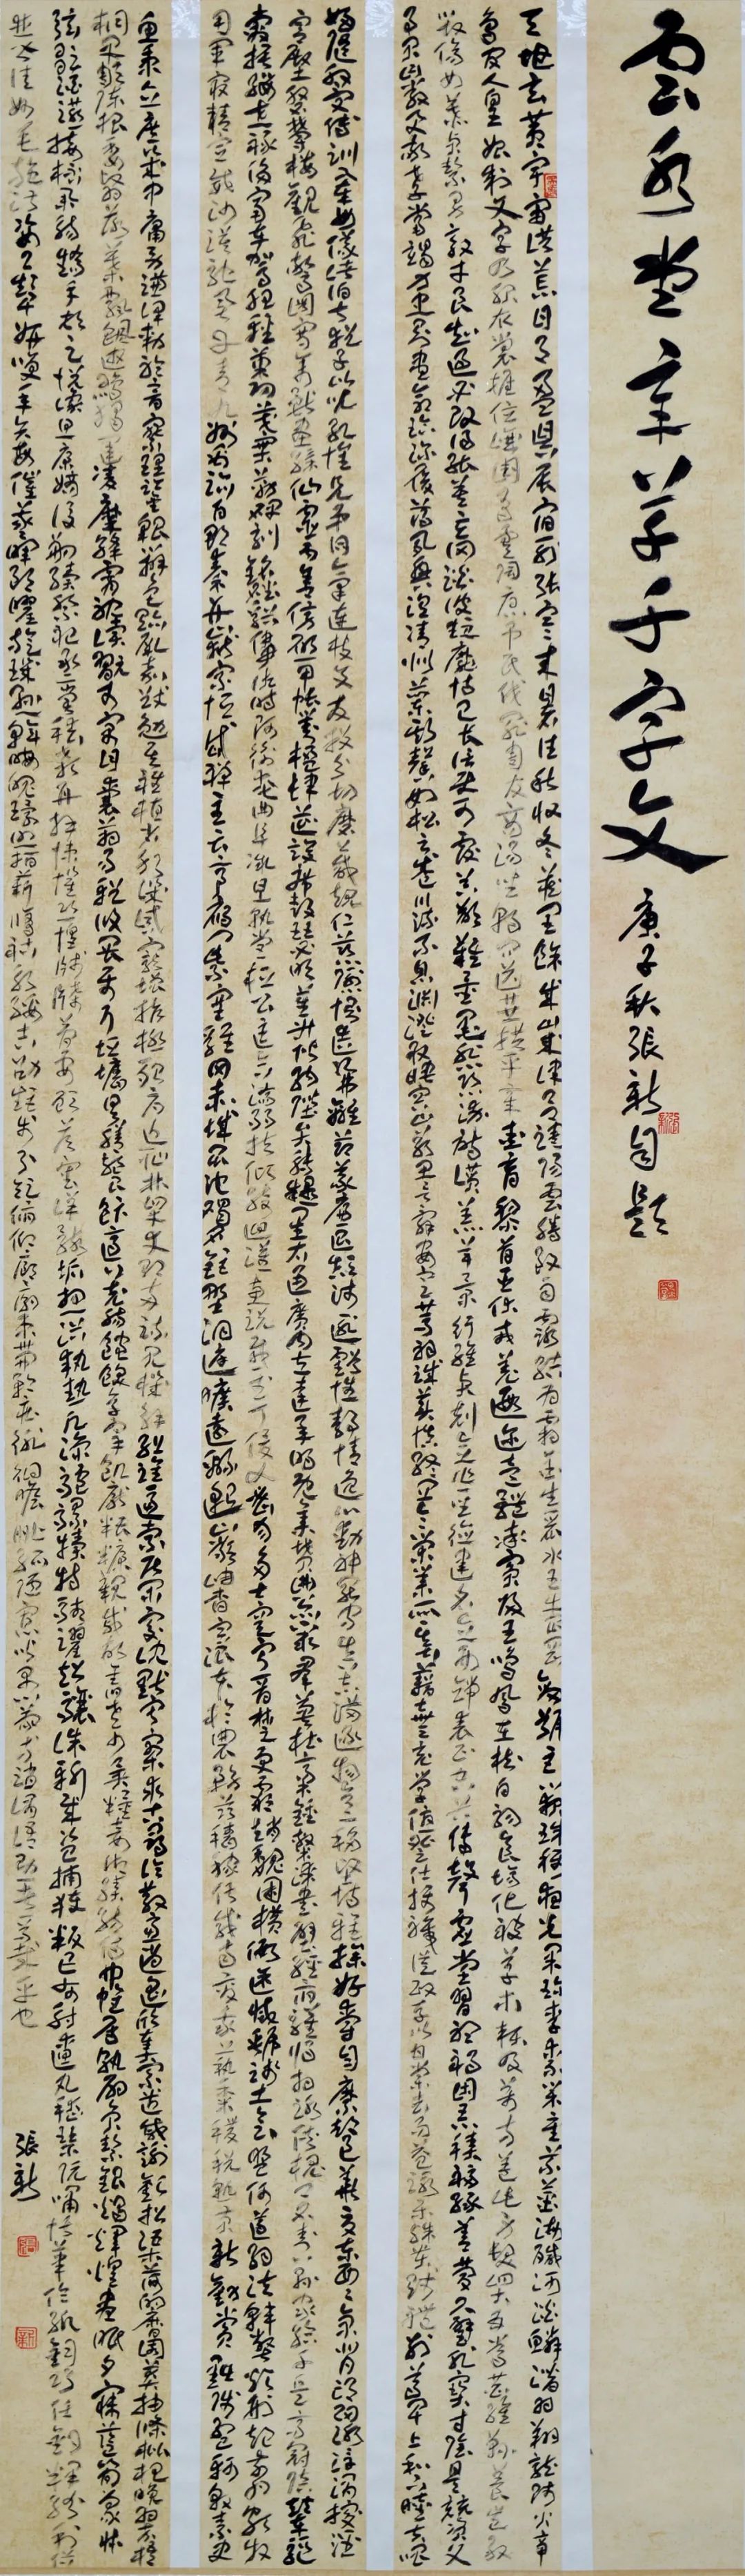 雲水堂章草千字文
庚子秋張新自題
天地玄黃宇宙洪荒日月盈昃辰宿列張寒來暑往秋收冬藏閏餘成歲律呂調陽雲騰致雨露結為霜金生麗水玉出崑岡劍號巨闕珠稱夜光果珍李柰菜重芥薑海鹹河淡鱗潛羽翔龍師火帝
鳥官人皇始制文字乃服衣裳推位讓國有虞陶唐弔民伐罪周發殷湯坐朝問道垂拱平章愛育黎首臣伏戎羌遐邇壹體率賓歸王鳴鳳在樹白駒食場化被草木賴及萬方蓋此身髮四大五常恭惟鞠養豈敢
毀傷女慕貞絜男效才良知過必改得能莫忘罔談彼短靡恃己長信使可覆器欲難量墨悲絲染詩讚羔羊景行維賢剋念作聖德建名立形端表正空谷傳聲虛堂習聽禍因惡積福緣善慶尺璧非寶寸陰是競資父
事君曰嚴與敬孝當竭力忠則盡命臨深履薄夙興溫凊似蘭斯馨如松之盛川流不息淵澄取映容止若思言辭安定篤初誠美慎終宜令榮業所基籍甚無竟學優登仕攝職從政存以甘棠去而益詠樂殊貴賤禮別尊卑上和下睦夫唱
婦隨外受傅訓入奉母儀諸姑伯叔猶子比兒孔懷兄弟同氣連枝交友投分切磨箴規仁慈隱惻造次弗離節義廉退顛沛匪虧性靜情逸心動神疲守真志滿逐物意移堅持雅操好爵自縻都邑華夏東西二京背邙面洛浮渭據涇
宮殿盤鬱樓觀飛驚圖寫禽獸畫綵仙靈丙舍傍啟甲帳對楹肆筵設席鼓瑟吹笙升階納陛弁轉疑星右通廣內左達承明既集墳典亦聚群英杜稿鍾隸漆書壁經府羅將相路俠槐卿戶封八縣家給千兵高冠陪輦驅
轂振纓世祿侈富車駕肥輕策功茂實勒碑刻銘磻溪伊尹佐時阿衡奄宅曲阜微旦孰營桓公匡合濟弱扶傾綺迴漢惠說感武丁俊乂密勿多士寔寧晉楚更霸趙魏困橫假途滅虢踐土會盟何遵約法韓弊煩刑起翦頗牧
用軍最精宣威沙漠馳譽丹青九州禹跡百郡秦并嶽宗恆岱禪主云亭雁門紫塞雞田赤城昆池碣石鉅野洞庭曠遠緜邈巖岫杳冥治本於農務茲稼穡俶載南畝我藝黍稷稅熟貢新勸賞黜陟孟軻敦素史
魚秉直庶幾中庸勞謙謹敕聆音察理鑒貌辨色貽厥嘉猷勉其祗植省躬譏誡寵增抗極殆辱近恥林皋幸即兩疏見機解組誰逼索居閒處沈默寂寥求古尋論散慮逍遙欣奏累遣慼謝歡招渠荷的歷園莽抽條枇杷晚翠梧
桐早凋陳根委翳落葉飄颻遊鵾獨運凌摩絳霄耽讀翫市寓目囊箱易輶攸畏屬耳垣牆具膳餐飯適口充腸飽飫烹宰飢厭糟糠親戚故舊老少異糧妾御績紡侍巾帷房紈扇圓潔銀燭煒煌晝眠夕寐藍筍象床
弦歌酒讌接杯舉觴矯手頓足悅豫且康嫡後嗣續祭祀烝嘗稽顙再拜悚懼恐惶牋牒簡要顧答審詳骸垢想浴執熱願涼驢騾犢特駭躍超驤誅斬賊盜捕獲叛亡布射遼丸嵇琴阮嘯恬筆倫紙鈞巧任釣釋紛利俗
並皆佳妙毛施淑姿工顰妍笑年矢每催曦暉朗曜璇璣懸斡晦魄環照指薪修祜永綏吉劭矩步引領俯仰廊廟束帶矜莊徘徊瞻眺孤陋寡聞愚蒙等誚謂語助者焉哉乎也
張新